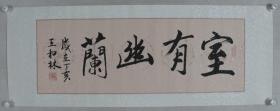 室有幽蘭
歲在丁亥
王和林